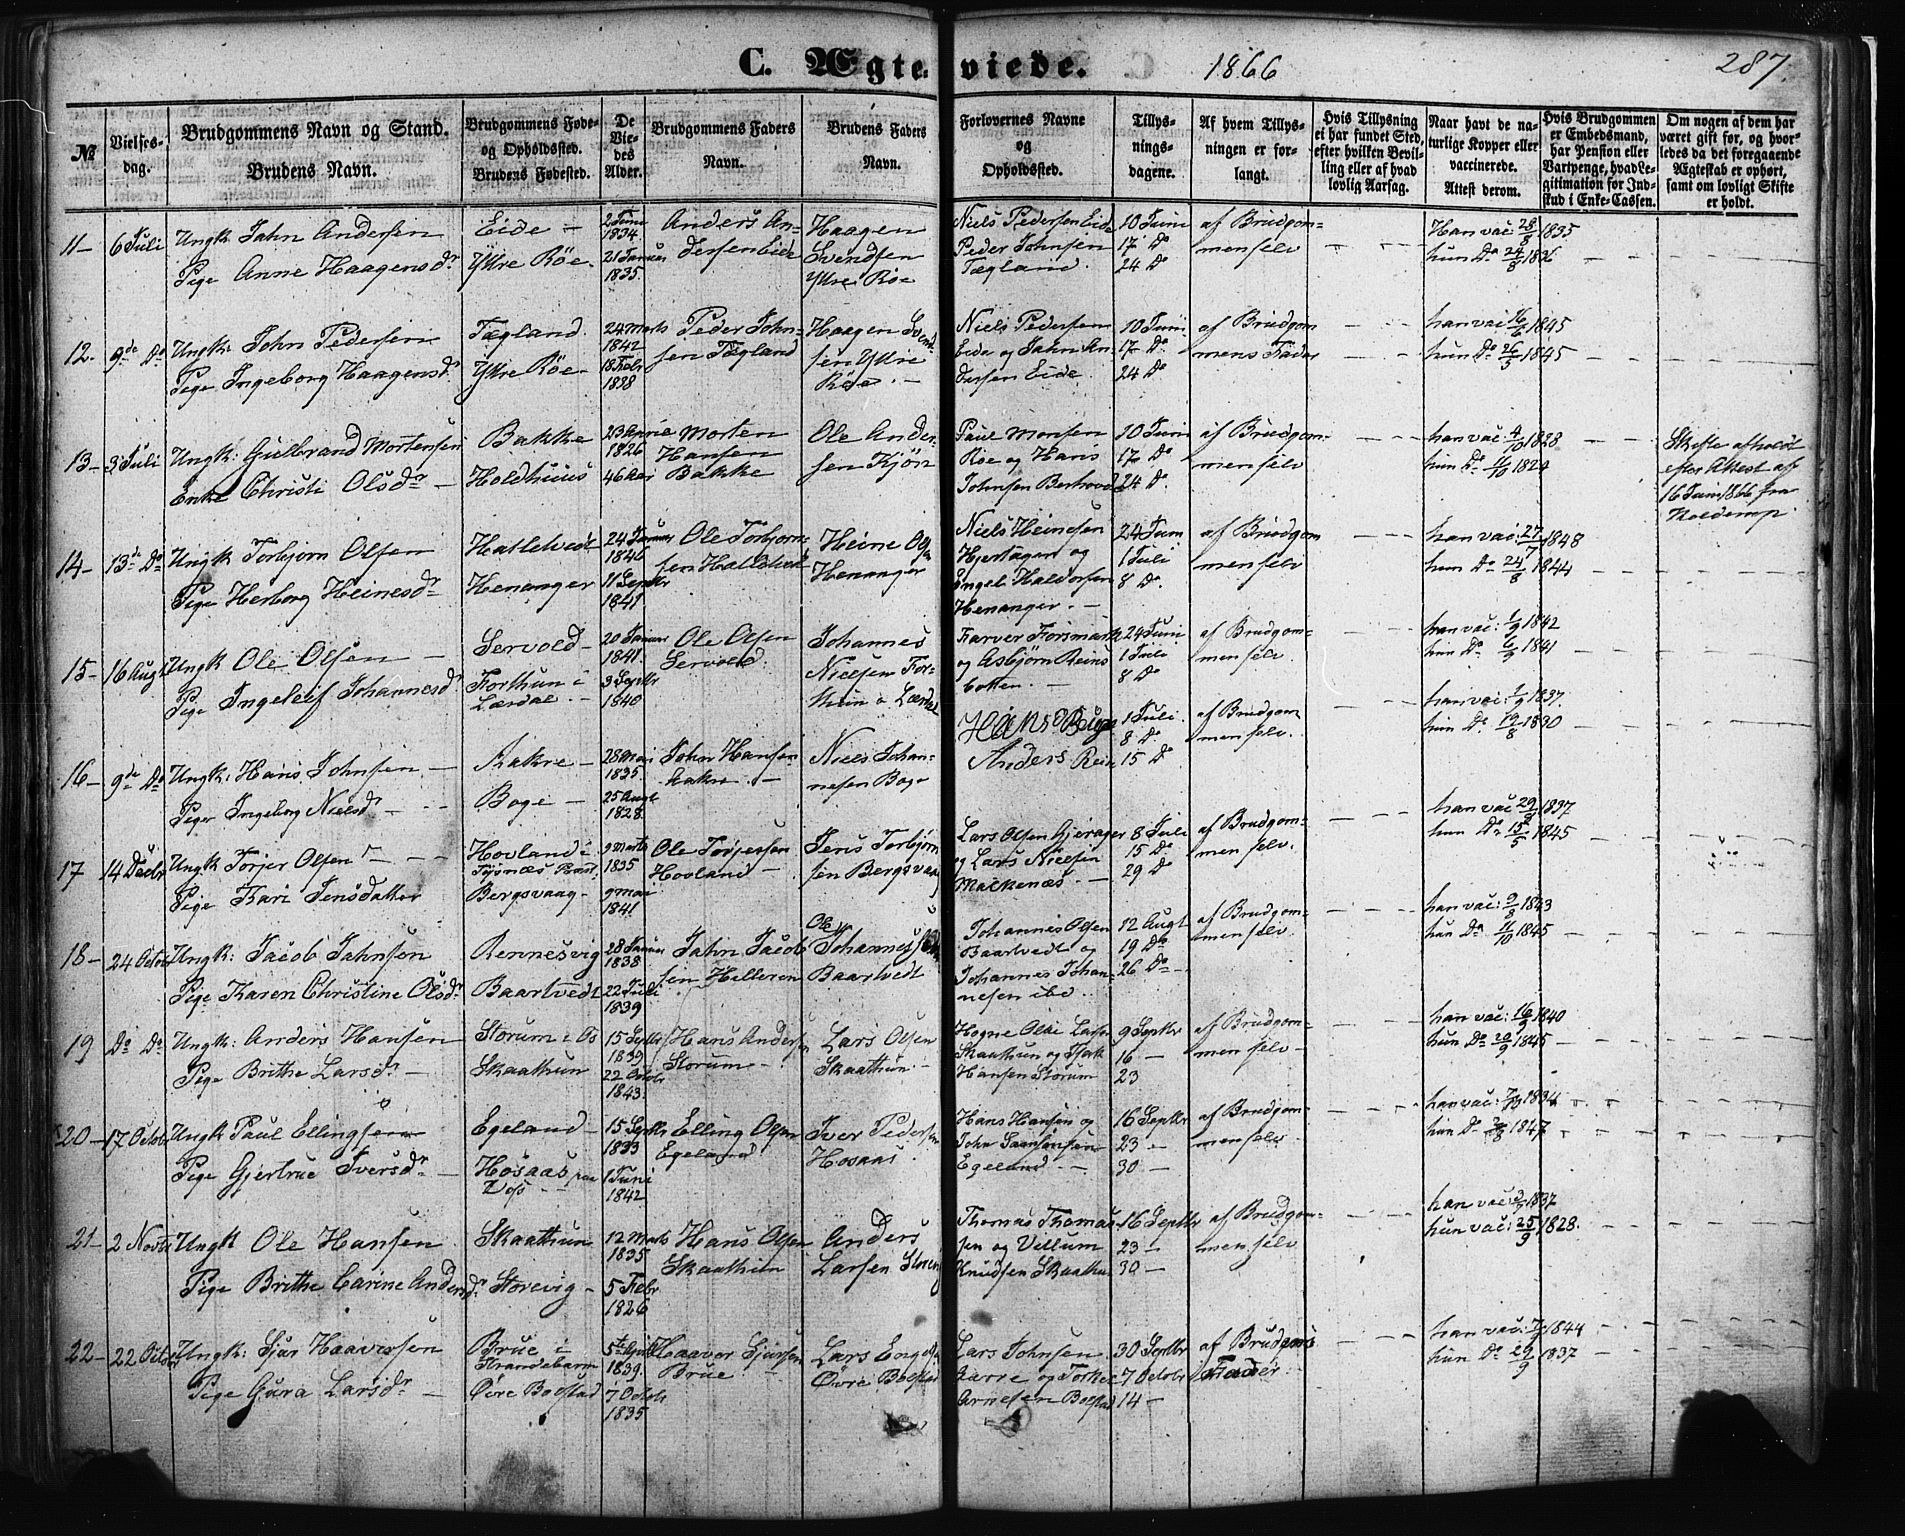 C. Ægteviede. 1866 287.
№
Vielses-
dag.
Brudgommens Navn og Stand.
Brudens Navn.
Brudgommens Føde-
og Opholdssted.
Brudens Fødested.
De
Vie-
des
Alder.
Brudgommens Faders
Navn.
Brudens Faders
Navn.
Forlovernes Navne
og
Opholdssted.
Tillys-
nings-
dagene.
Af hvem Tillys-
ningen er for-
langt.
Hvis Tillysning
ei har fundet Sted,
efter hvilken Bevil-
ling eller af hvad
lovlig Aarsag.
Naar havt de na-
turlige Kopper eller
vaccinerede.
Attest derom.
Hvis Brudgommen
er Embedsmand,
har Pension eller
Vartpenge, hvad Le-
gitimation for Ind-
skud i Enke-Cassen.
Om nogen af dem har
været gift før, og hvor-
ledes da det foregaaende
Ægteskab er ophørt,
samt om lovligt Skifte
er holdt.
11- 6 Juli
Ungk. Jahn Andersen
Pige Anne Haagensdr
Eide -
Ytre Röe-
2 Juni
1834
21 Januar
1835
Anders An-
dersen Eide
Haagen
Svendsen
Ytre Röe
Niels Pedersen Eide
Peder Johnsen
Tægland.
10 Juni
17 Do
24 Do
af Brudgom-
men selv
Han vac 28/8 1835
hun Do 24/8 1836
12. 9de Do
Ungk: John Pedersen
Pige Ingeborg Haagensdr
Tægland
Ytre Röe-
24 Marts
1842
18 Febr
1838
Peder John-
sen Tægland
Haagen Svend-
sen Ytre
Röe. -
Niels Pedersen
Eide og Jahn An-
dersen Eide.
10 Juni
17 Do
24 Do
af Brudgom
mens Fader
han vac 16/6 1845
hun Do 26/5 1845
13- 3 Juli
Ungk: Gulbrand Mortensen
Enke Christi Olsdr -
Bakke
Holdhuus
1826
46 Aar
Morten
Hansen
Bakke
Ole Ander-
sen Kjön
Paul Monsen
Röe og Hans
Johnsen
10 Juni
17 Do
24 Do
af Brudgom-
men selv
han vac 4/10 1828
hun Do 1824
Skifte afholdt
efter Attest af
16 Juni 1866 fra
14- 13de Do
Ungk Torbjörn Olsen
Pige Herborg Heinesdr
Hatletvedt
Henanger
24 Januar
1846
11 Septbr
1841
Ole Torbjörn-
sen Hatletvedt
Heine Olsen
Henanger
Niels Heinesen
Hjertager og
Engel Haldorsen
Henanger. -
24 Juni
1 Juli
8 Do
af Brudgom
men selv
han vac: 27/7 1848
hun Do 24/8 1844
15- 16 Augt
Ungk Ole Olsen -
Pige Ingeleef Johannesdr
Servold-
Forthun i
Lærdal -
20 Januar
1841.
3 Septbr
1840
Ole Olsen
Servold.
Johannes
Nielsen For-
thun i Lærdal
Farver Forsmark
og Asbjörn Reins-
botten. -
24 Juni
1 Juli
8 Do
af Brudgom-
men selv.
han vac: 1/9 1842
hun Do 6/9 1841
16- 9de Do
Ungk: Hans Johnsen -
Pige Ingeborg Nielsdr -
Aakre-
Boge -
28 Mai
1835
25 Augt
1828
John Hansen
Aakre. -
Niels Johan-
nesen Boge
Hans Boge
Anders Rein
1 Juli
8 Do
15 Do
af Brudgom
men selv.
han vac: 1/9 1837.
hun Do 19/8 1830
17 14 Decbr
Ungk Torjer Olsen
Pige Kari Jensdatter
Hovland i
Tysnæs Præst.
Bergsvaag-
9 Marts
1835
9 Mai
1841
Ole Torjersen
Hovland -
Jens Torbjörn
sen Bergsvaag
Lars Olsen Gjerager
og Lars Nielsen
Markenæs. -
8 Juli
15 Do
29 Do
af Brudgom-
men selv.
han vac 1837
hun Do 15/5 1845
18- 24 Octbr
Ungk: Jacob Jahnsen
Pige Karen Christine Olsdr
Rennesvig
Baartvedt
28 Januar
1838
22 Juli
1839
Jahn Jacob
sen Helleren
Ole
Johannessen
Baartvedt
Johannes Olsen
Baartvedt og
Johannes Johan-
nesen ibd.
12 Augt
19 Do
26 Do
af Brudgom-
men selv
han vac: 9/8 1843
hun Do 1845
19 Do Do
Ungk: Anders Hansen
Pige Brithe Larsdr -
Storum i Os
Skaathun
15 Septbr
1839
22 Octobr
1843.
Hans Andersen
Storum -
Lars Olsen
Skaathun -
Hogne Olai Larsen
Skaathun og
Hansen Storum
9 Septbr
16 -
23
af Brudgom-
men selv-
han vac: 16/9 1840
hun Do 20/9 1845
20- 17 Octobr
Ungk Paul Ellingsen
Pige Gjertrue Iversdr -
Egeland-
Hosaas paa
Vos -
15 Septbr
1833
1 Juni
1842
Elling Olsen
Egeland
Iver Pedersen
Hosaas.
Hans Hansen og
John
Egeland -
16 Septbr
23 -
30 -
af Brudgom-
men selv-
han vac: 1834
hun Do 1847
21- 2 Novbr
Ungk Ole Hansen
Pige Brithe Carine Andersdr
Skaathun
Storevig -
12 Marts
1835
5 Febr
1826
Hans Olsen
Skaathun
Anders
Larsen Storevig
Thomas Thomas-
sen og Villum
Knudsen Skaathun
16 Septbr
23 -
30 -
af Brudgom-
men selv
han vac 1837
hun vac: 25/9 1828.
22- 22 Octobr
Ungk: Sjur Haavorsen
Pige Gura Larsdr -
Brue i
Strandebarm
Övre Bolstad
5te April
1839.
7 Octobr
1835
Haavor Sjursen
Brue -
Lars
Övre Bolstad
Lars Johnsen
Aarre og Torkel
Arnesen Bolstad
30 Septbr
7 Octobr
14 -
af Brudgoms
Fader
han vac: 1844
hun Do 29/9 1837